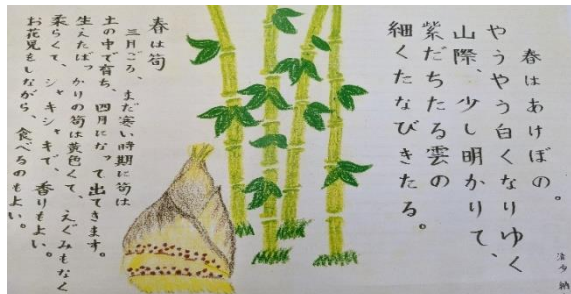 春はあけぼの。
やうやう白くなりゆく
山際、少し明かりて、
紫だちたる雲の
細くたなびきたる。
春は筍
三月ごろ、まだ寒い時期に筍は
土の中で育ち、四月になって出てきます。
生えたばっかりの筍は黄色くて、えぐみもなく
柔らくて、シャキシャキで、香りもよい。
お花見をしながら、食べるのもよい。